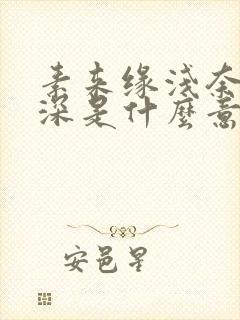 素来缘浅奈
深是什麼意
安邑星